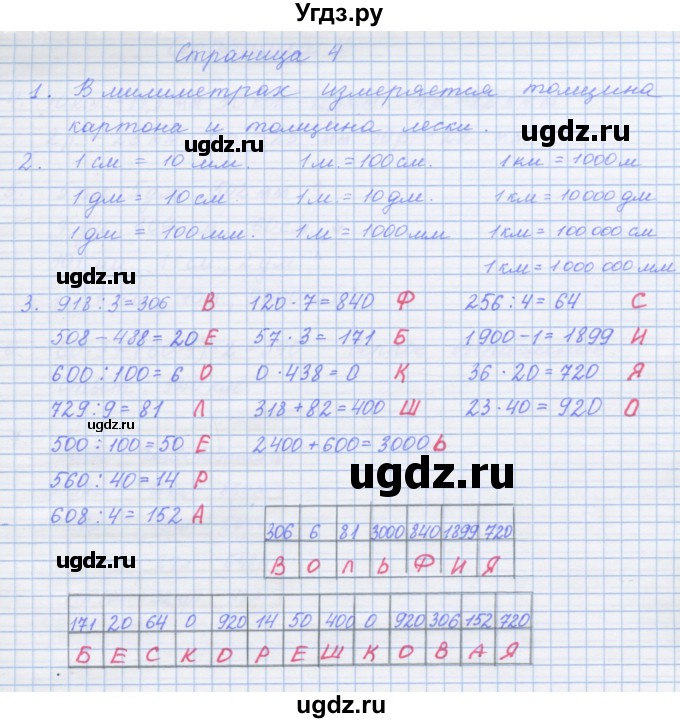 Угдз.ру
Страница 4
1. В милиметрах измеряется толщина
картона и толщина лески.
ugdz.ru
2. 1 см = 10 мм. 1 м. = 100 см. 1 км = 1000 м
1 дм = 10 см. 1 м. = 10 дм. 1 км = 10 000 дм
1 дм = 100 мм. 1 м = 1000 мм 1 км = 100 000 см
ugdz.ru 1 км = 1 000 000 мм
3. 918 : 3 = 306 В 120 · 7 = 840 Ф 256 : 4 = 64 С
508 - 488 = 20 Е 57 · 3 = 171 Б 1900 - 1 = 1899 И
600 : 100 = 6 О 0 · 438 = 0 К 36 · 20 = 720 Я
729 : 9 = 81 Л 318 + 82 = 400 Ш 23 · 40 = 920 О
500 : 100 = 50 Е 2400 + 600 = 3000 Ь
ugdz.ru
560 : 40 = 14 Р
608 : 4 = 152 А
306 6 81 3000 840 1899 720
ugdz.ru
В О Л Ь Ф И Я
171 20 64 0 920 14 50 400 0 920 306 152 720
Б Е С К О Р Е Ш К О В А Я
ugdz.ru